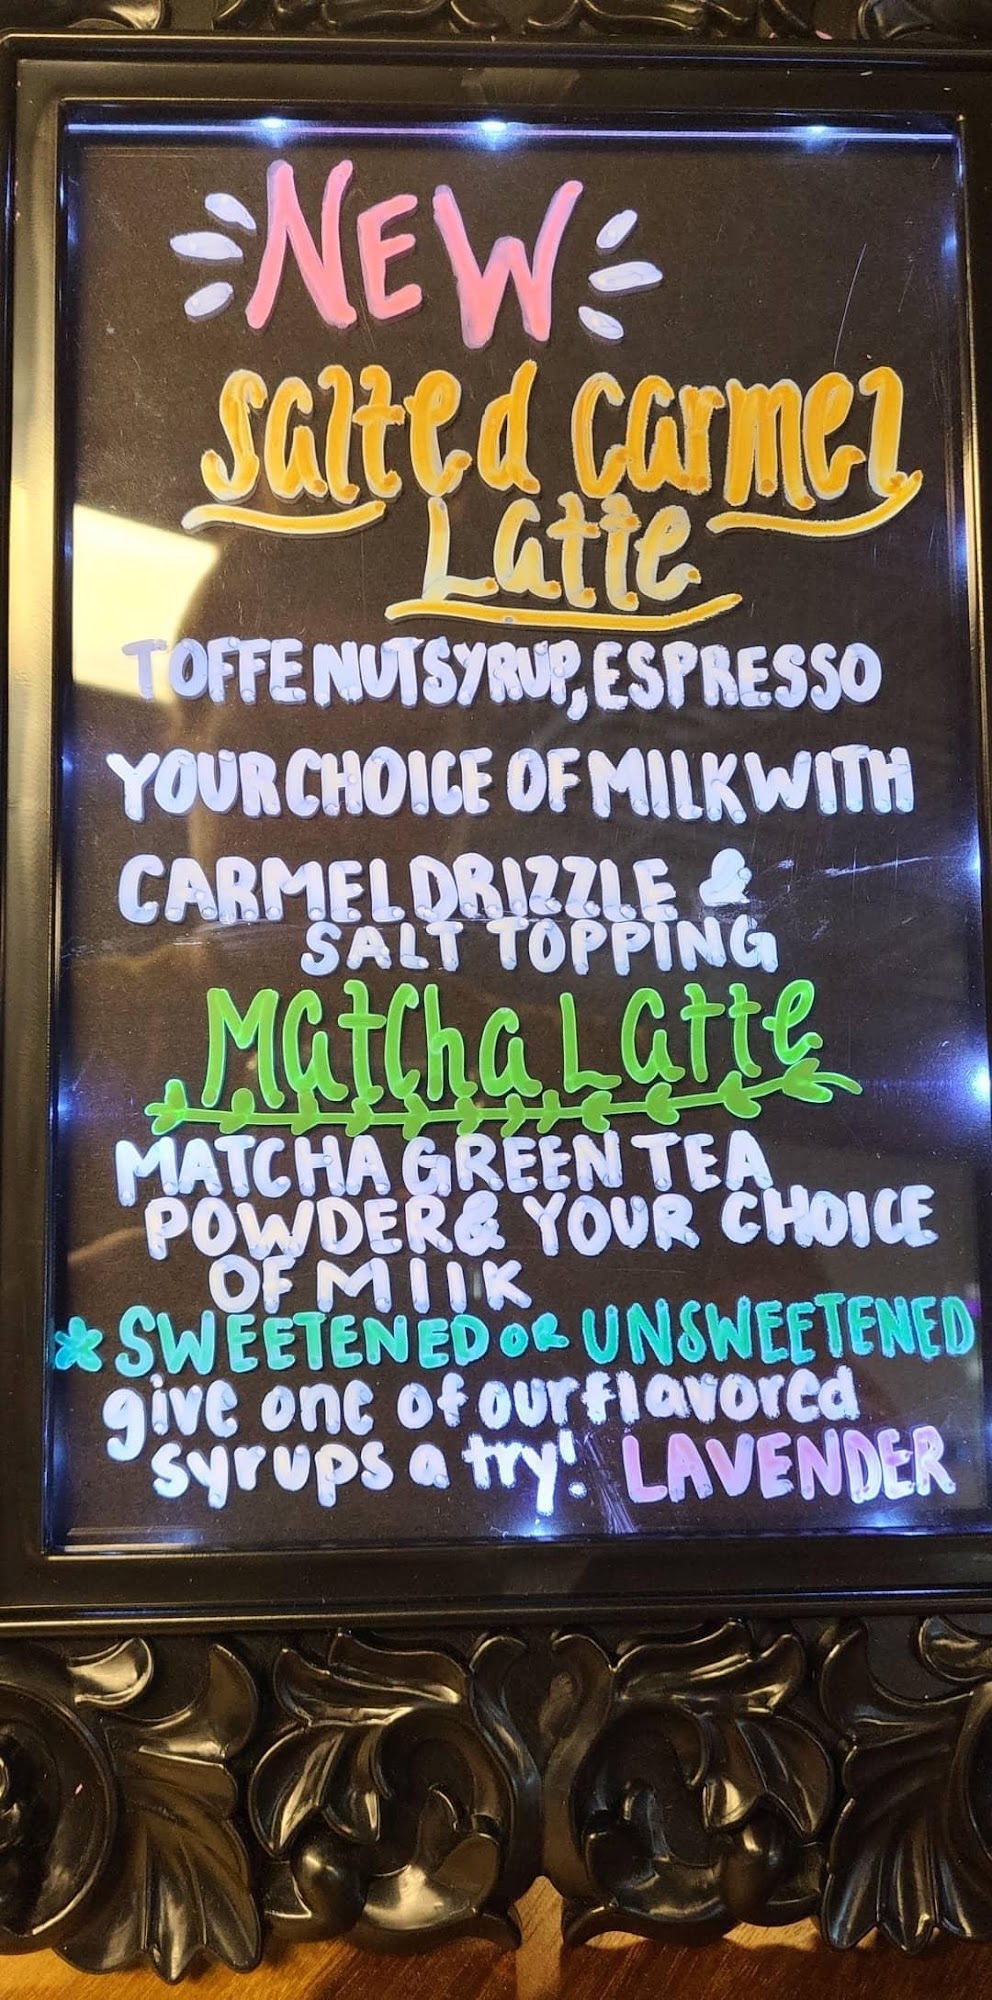 NEW
Salted Carmel
Latte
TOFFE NUT SYRUP, ESPRESSO
YOUR CHOICE OF MILK WITH
CARMEL DRIZZLE &
SALT TOPPING
Matcha Latte
MATCHA GREEN TEA
POWDER & YOUR CHOICE
OF MIIK
* SWEETENED OR UNSWEETENED
give one of our flavored
syrups a try! LAVENDER